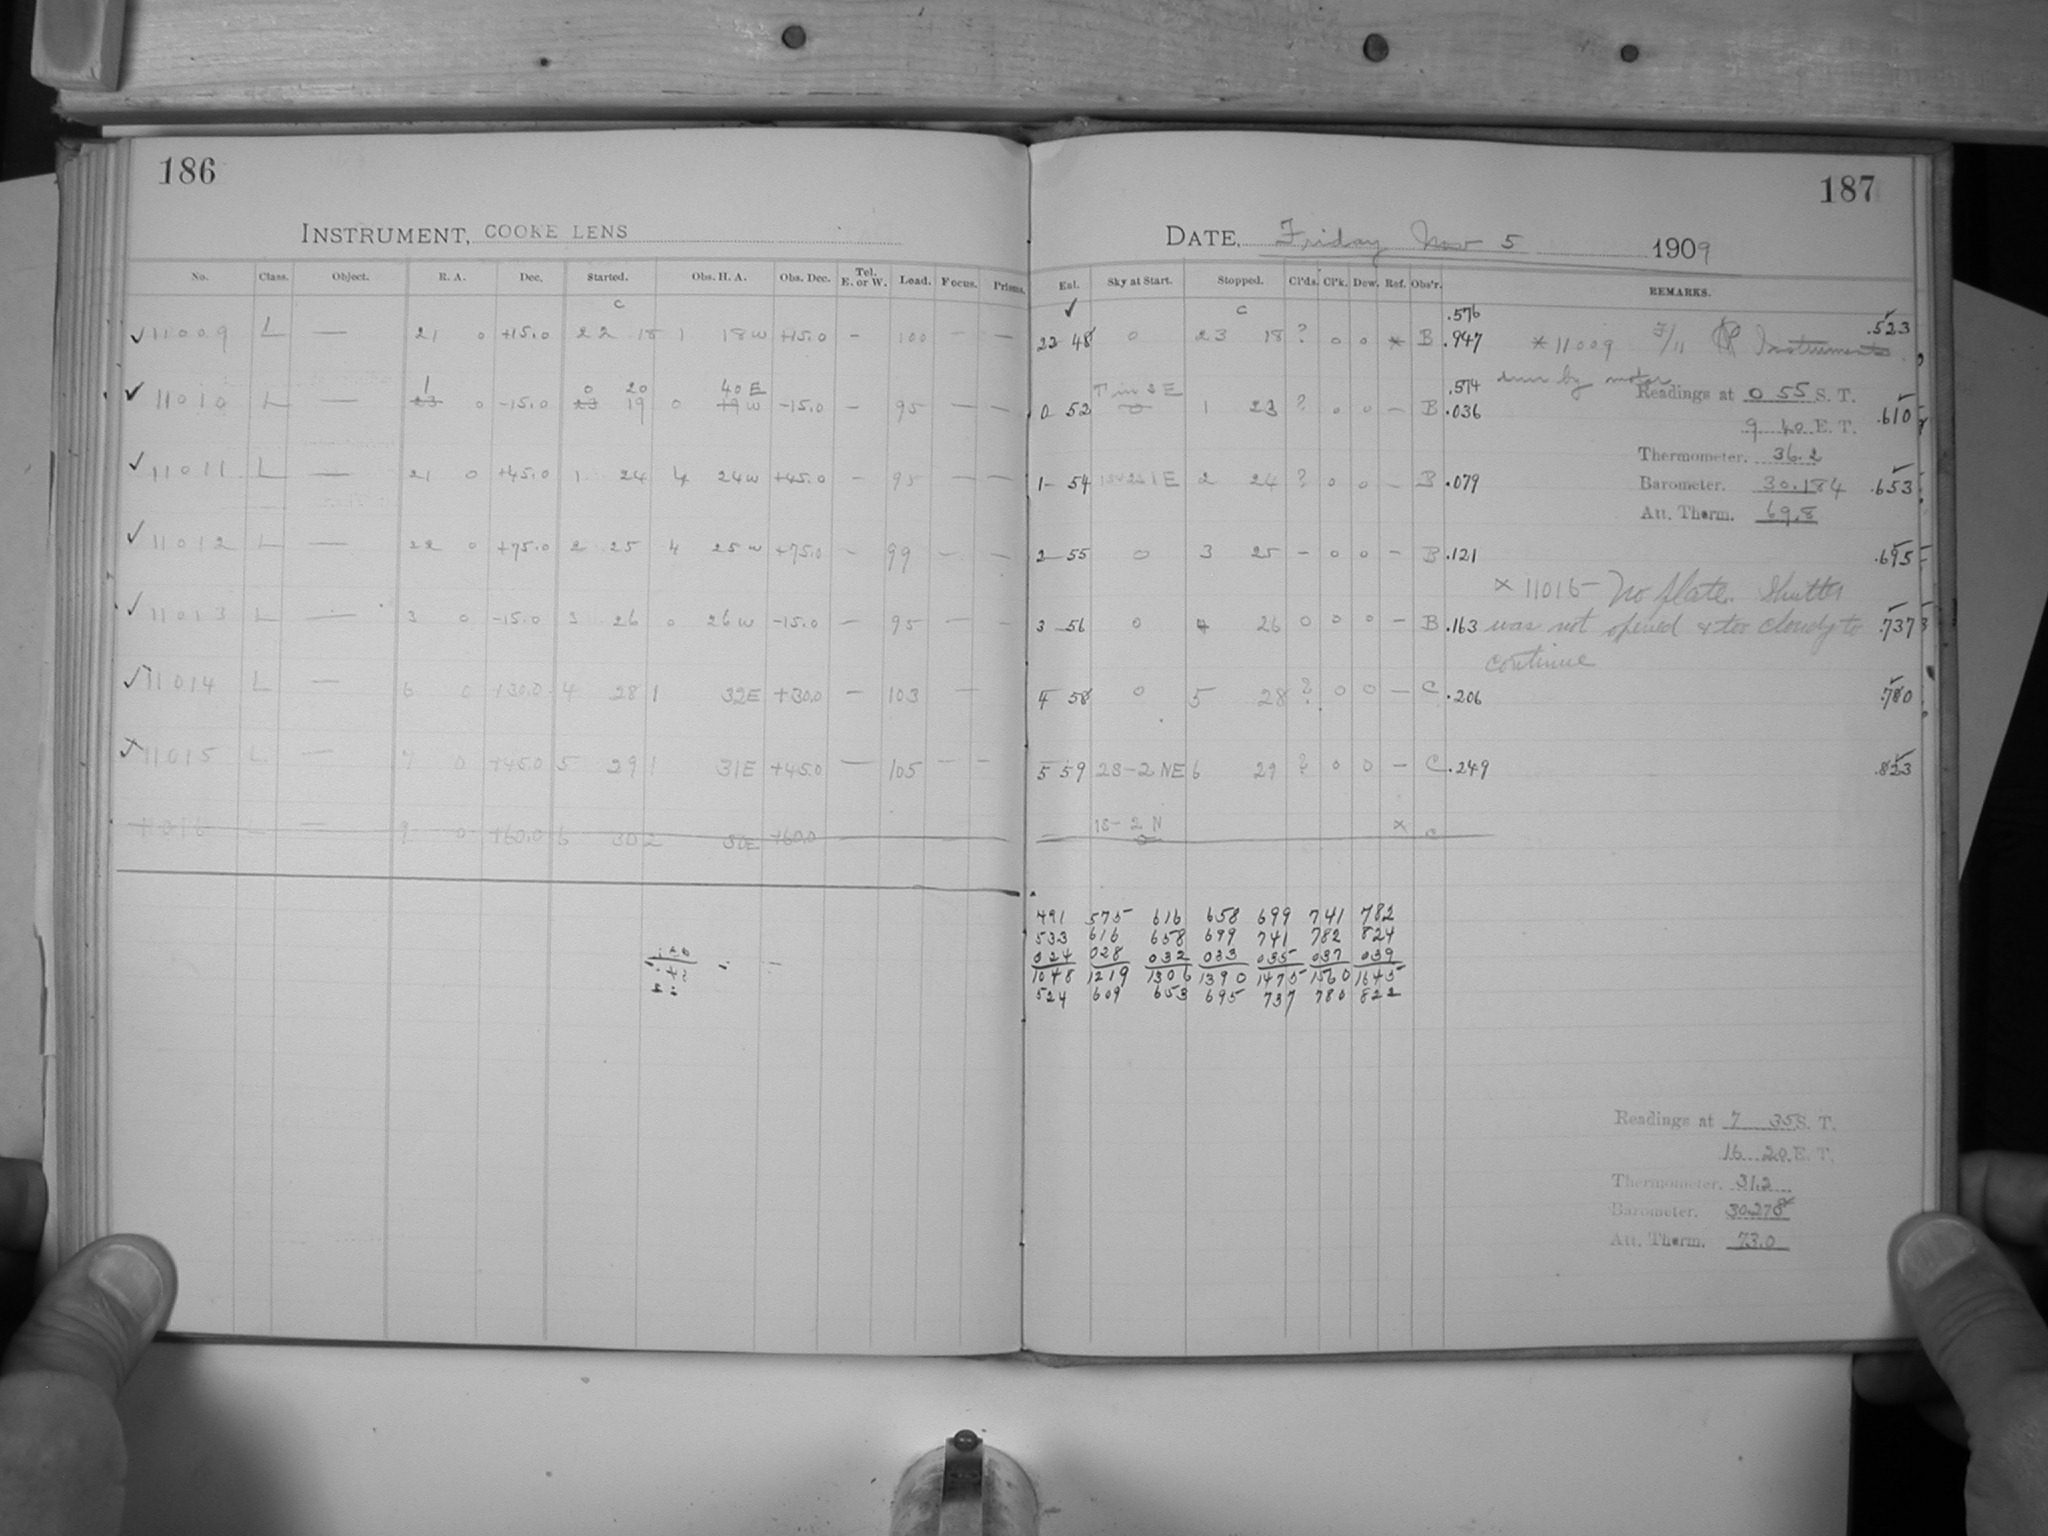 186
187
INSTRUMENT, COOKE LENS
DATE, Friday Nov 5 1909
No. Class. Object. R. A. Dec. Started. Obs. H. A. Obs. Dec. Tel. E. or W. Load. Focus. Prisms. Exl. Sky at Start. Stopped. Cl'ds. Cl'k. Dew. Ref. Obs'r. REMARKS.
c ✓ c .576
✓ 11009 L — 21 0 +15.0 22 18 1 18 W +15.0 — 100 — — 22 48 0 23 18 ? 0 0 * B .947 * 11009 F/11 .523
run by motor
1 0 20 40 E T in S E .574
✓ 11010 L — 23 0 -15.0 23 19 0 19 W -15.0 — 95 — — 0 52 0 1 23 ? 0 0 — B .036 Readings at 0 55 S. T. .610
9 40 E. T.
Thermometer. 36.2
✓ 11011 L — 21 0 +45.0 1 24 4 24 W +45.0 — 95 — — 1 54 2 24 ? 0 0 — B .079 Barometer. 30.184 .653
Att. Therm. 69.8
✓ 11012 L — 22 0 +75.0 2 25 4 25 W +75.0 — 99 — — 2 55 0 3 25 — 0 0 — B .121 .695
x 11016 — No plate. Shutter
✓ 11013 L — 3 0 -15.0 3 26 0 26 W -15.0 — 95 — — 3 56 0 4 26 0 0 0 — B .163 was not opened & too cloudy to .737
continue
✓ 11014 L — 6 0 +30.0 4 28 1 32 E +30.0 — 103 — 4 58 0 5 28 ? 0 0 — C .206 .780
11015 L — 7 0 +45.0 5 29 1 31 E +45.0 — 105 — — 5 59 2S-2 NE 6 29 ? 0 0 — C .249 .823
11016 L — 9 0 +60.0 6 30 2 30 E +60.0 1S-2 N x C
491 575 616 658 699 741 782
533 616 658 699 741 782 824
024 028 032 033 035 037 039
1048 1219 1306 1390 1475 1560 1645
524 609 653 695 737 780 822
Readings at 7 35 S. T.
16 20 E. T.
Thermometer. 31.2
Barometer. 30.278
Att. Therm. 73.0